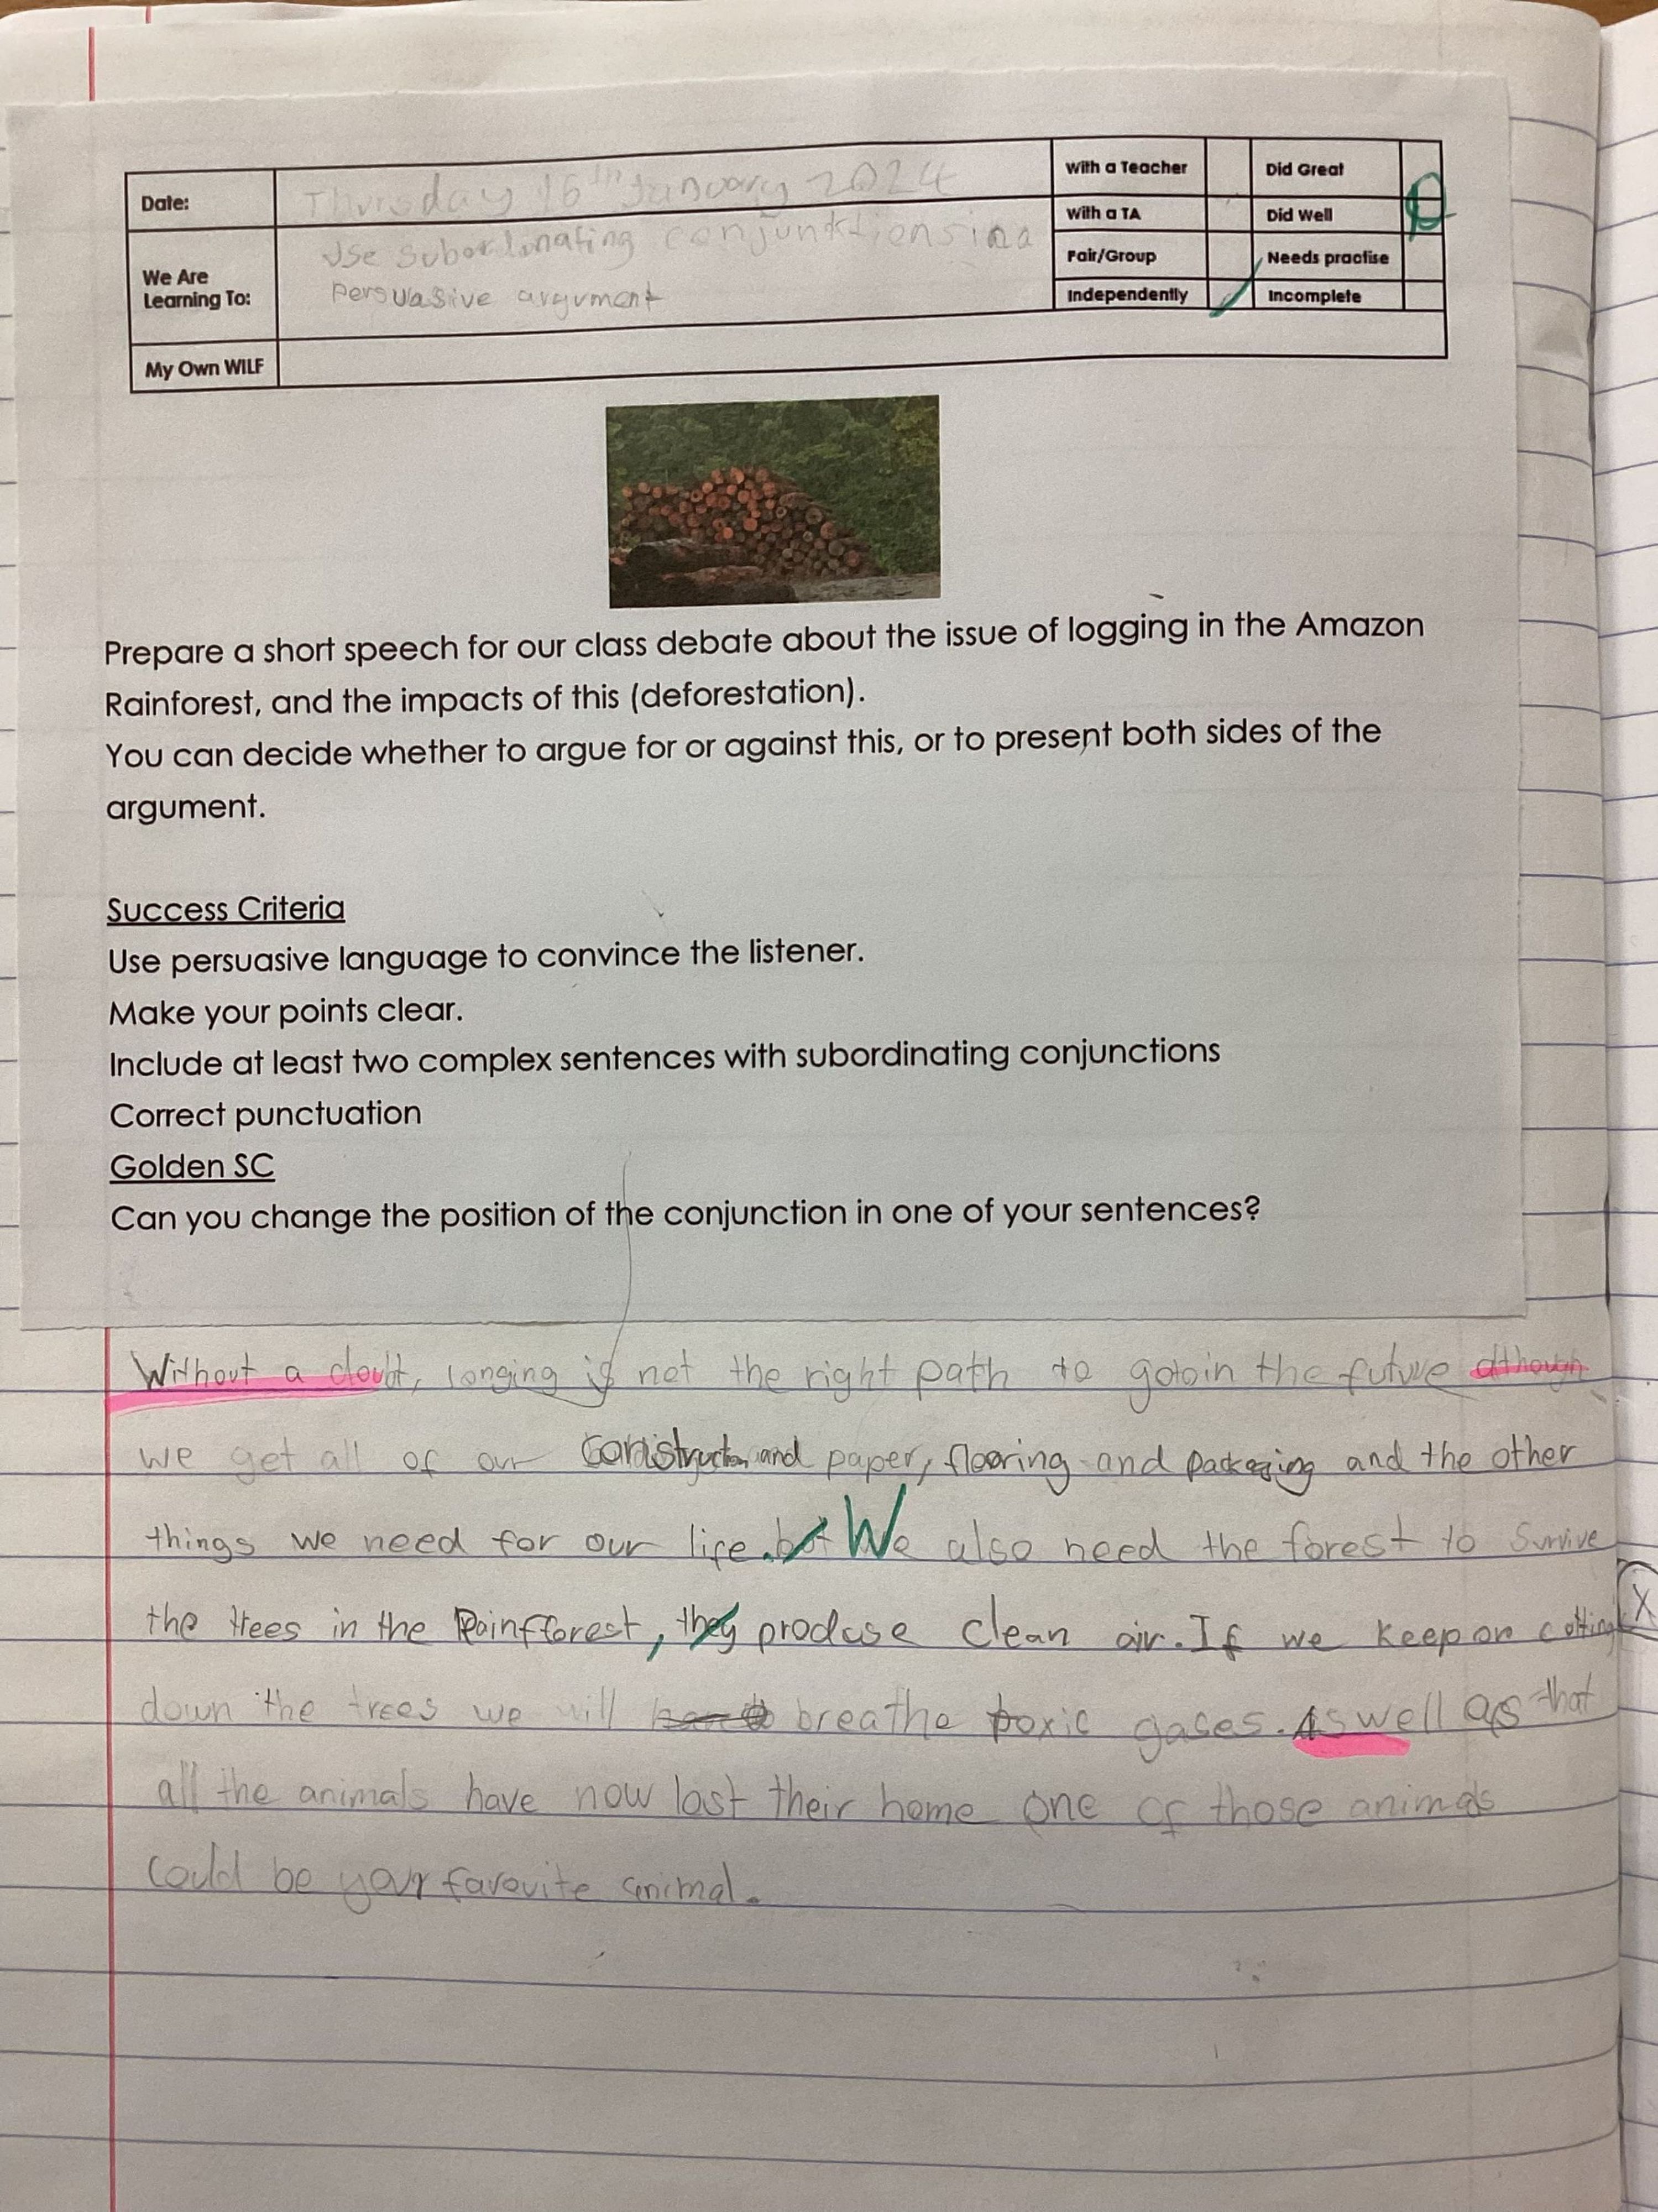 Date:
Thursday 16th January 2024
We Are
Learning To:
Use Subordinating conjunktions in a
persuasive argument
My Own WILF
With a Teacher
Did Great
With a TA
Did Well
Pair/Group
Needs practise
Independently
Incomplete
Prepare a short speech for our class debate about the issue of logging in the Amazon
Rainforest, and the impacts of this (deforestation).
You can decide whether to argue for or against this, or to present both sides of the
argument.
Success Criteria
Use persuasive language to convince the listener.
Make your points clear.
Include at least two complex sentences with subordinating conjunctions
Correct punctuation
Golden SC
Can you change the position of the conjunction in one of your sentences?
Without a doubt, longing is not the right path to go in the future although
we get all of our and paper, flooring and packaging and the other
things we need for our life. but We also need the forest to survive
the trees in the Rainfforest, they produse clean air. If we keep on cutting
down the trees we will breathe toxic gases. As well as that
all the animals have now lost their home one of those animals
could be your favouite animal.